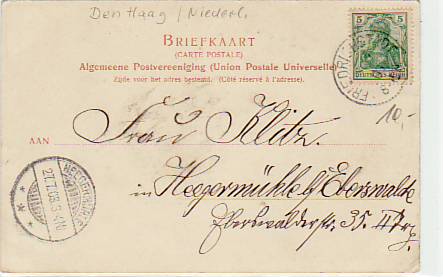 Den Haag / Niederl.
BRIEFKAART
(CARTE POSTALE)
Algemeene Postvereeniging (Union Postale Universelle)
Zijde voor het adres bestemd. (Côté réservé à l'adresse).
5 5
DEUTSCHES REICH
10,-
AAN
Frau Klitz.
in Heegermühle b/ Eberswalde
Eberswalderstr. 35. II
HEEGERMÜHLE